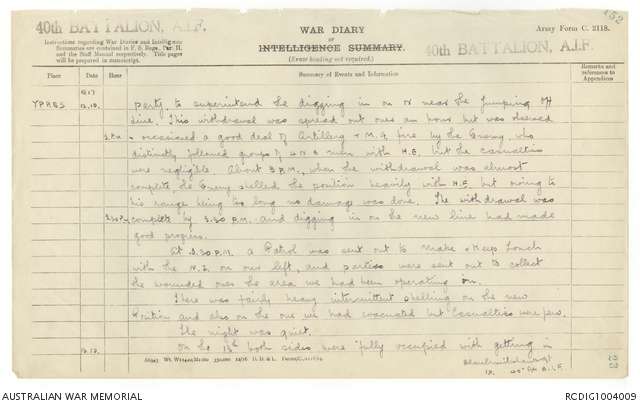 40th BATTALION, A.I.F.
WAR DIARY
or
INTELLIGENCE SUMMARY.
(Erase heading not required.)
Army Form C. 2118.
40th BATTALION, A.I.F.
Instructions regarding War Diaries and Intelligence
Summaries are contained in F. S. Regs., Part II.
and the Staff Manual respectively. Title pages
will be prepared in manuscript.
Place Date Hour Summary of Events and Information Remarks and references to Appendices
1917
YPRES 12.10. party to superintend the digging in on or near the Jumping Off
line. This withdrawal was spread out over an hour but was observed
& occasioned a good deal of Artillery & M.G. fire by the Enemy, who
distinctly followed groups of 4 or 6 men with H.E. but the casualties
were negligible. About 3 P.M., when the withdrawal was almost
complete the Enemy shelled the position heavily with H.E. but owing to
his range being too long no damage was done. The withdrawal was
complete by 3.30 P.M. and digging in on the new line had made
good progress.
At 3.30 P.M. a Patrol was sent out to make & keep touch
with the N.Z. on our left, and parties were sent out to collect
the wounded over the area we had been operating on.
There was fairly heavy intermittent shelling on the new
Position and also on the one we had evacuated but Casualties were few.
The night was quiet.
On the 13th both sides were fully occupied with getting in
AUSTRALIAN WAR MEMORIAL
RCDIG1004009